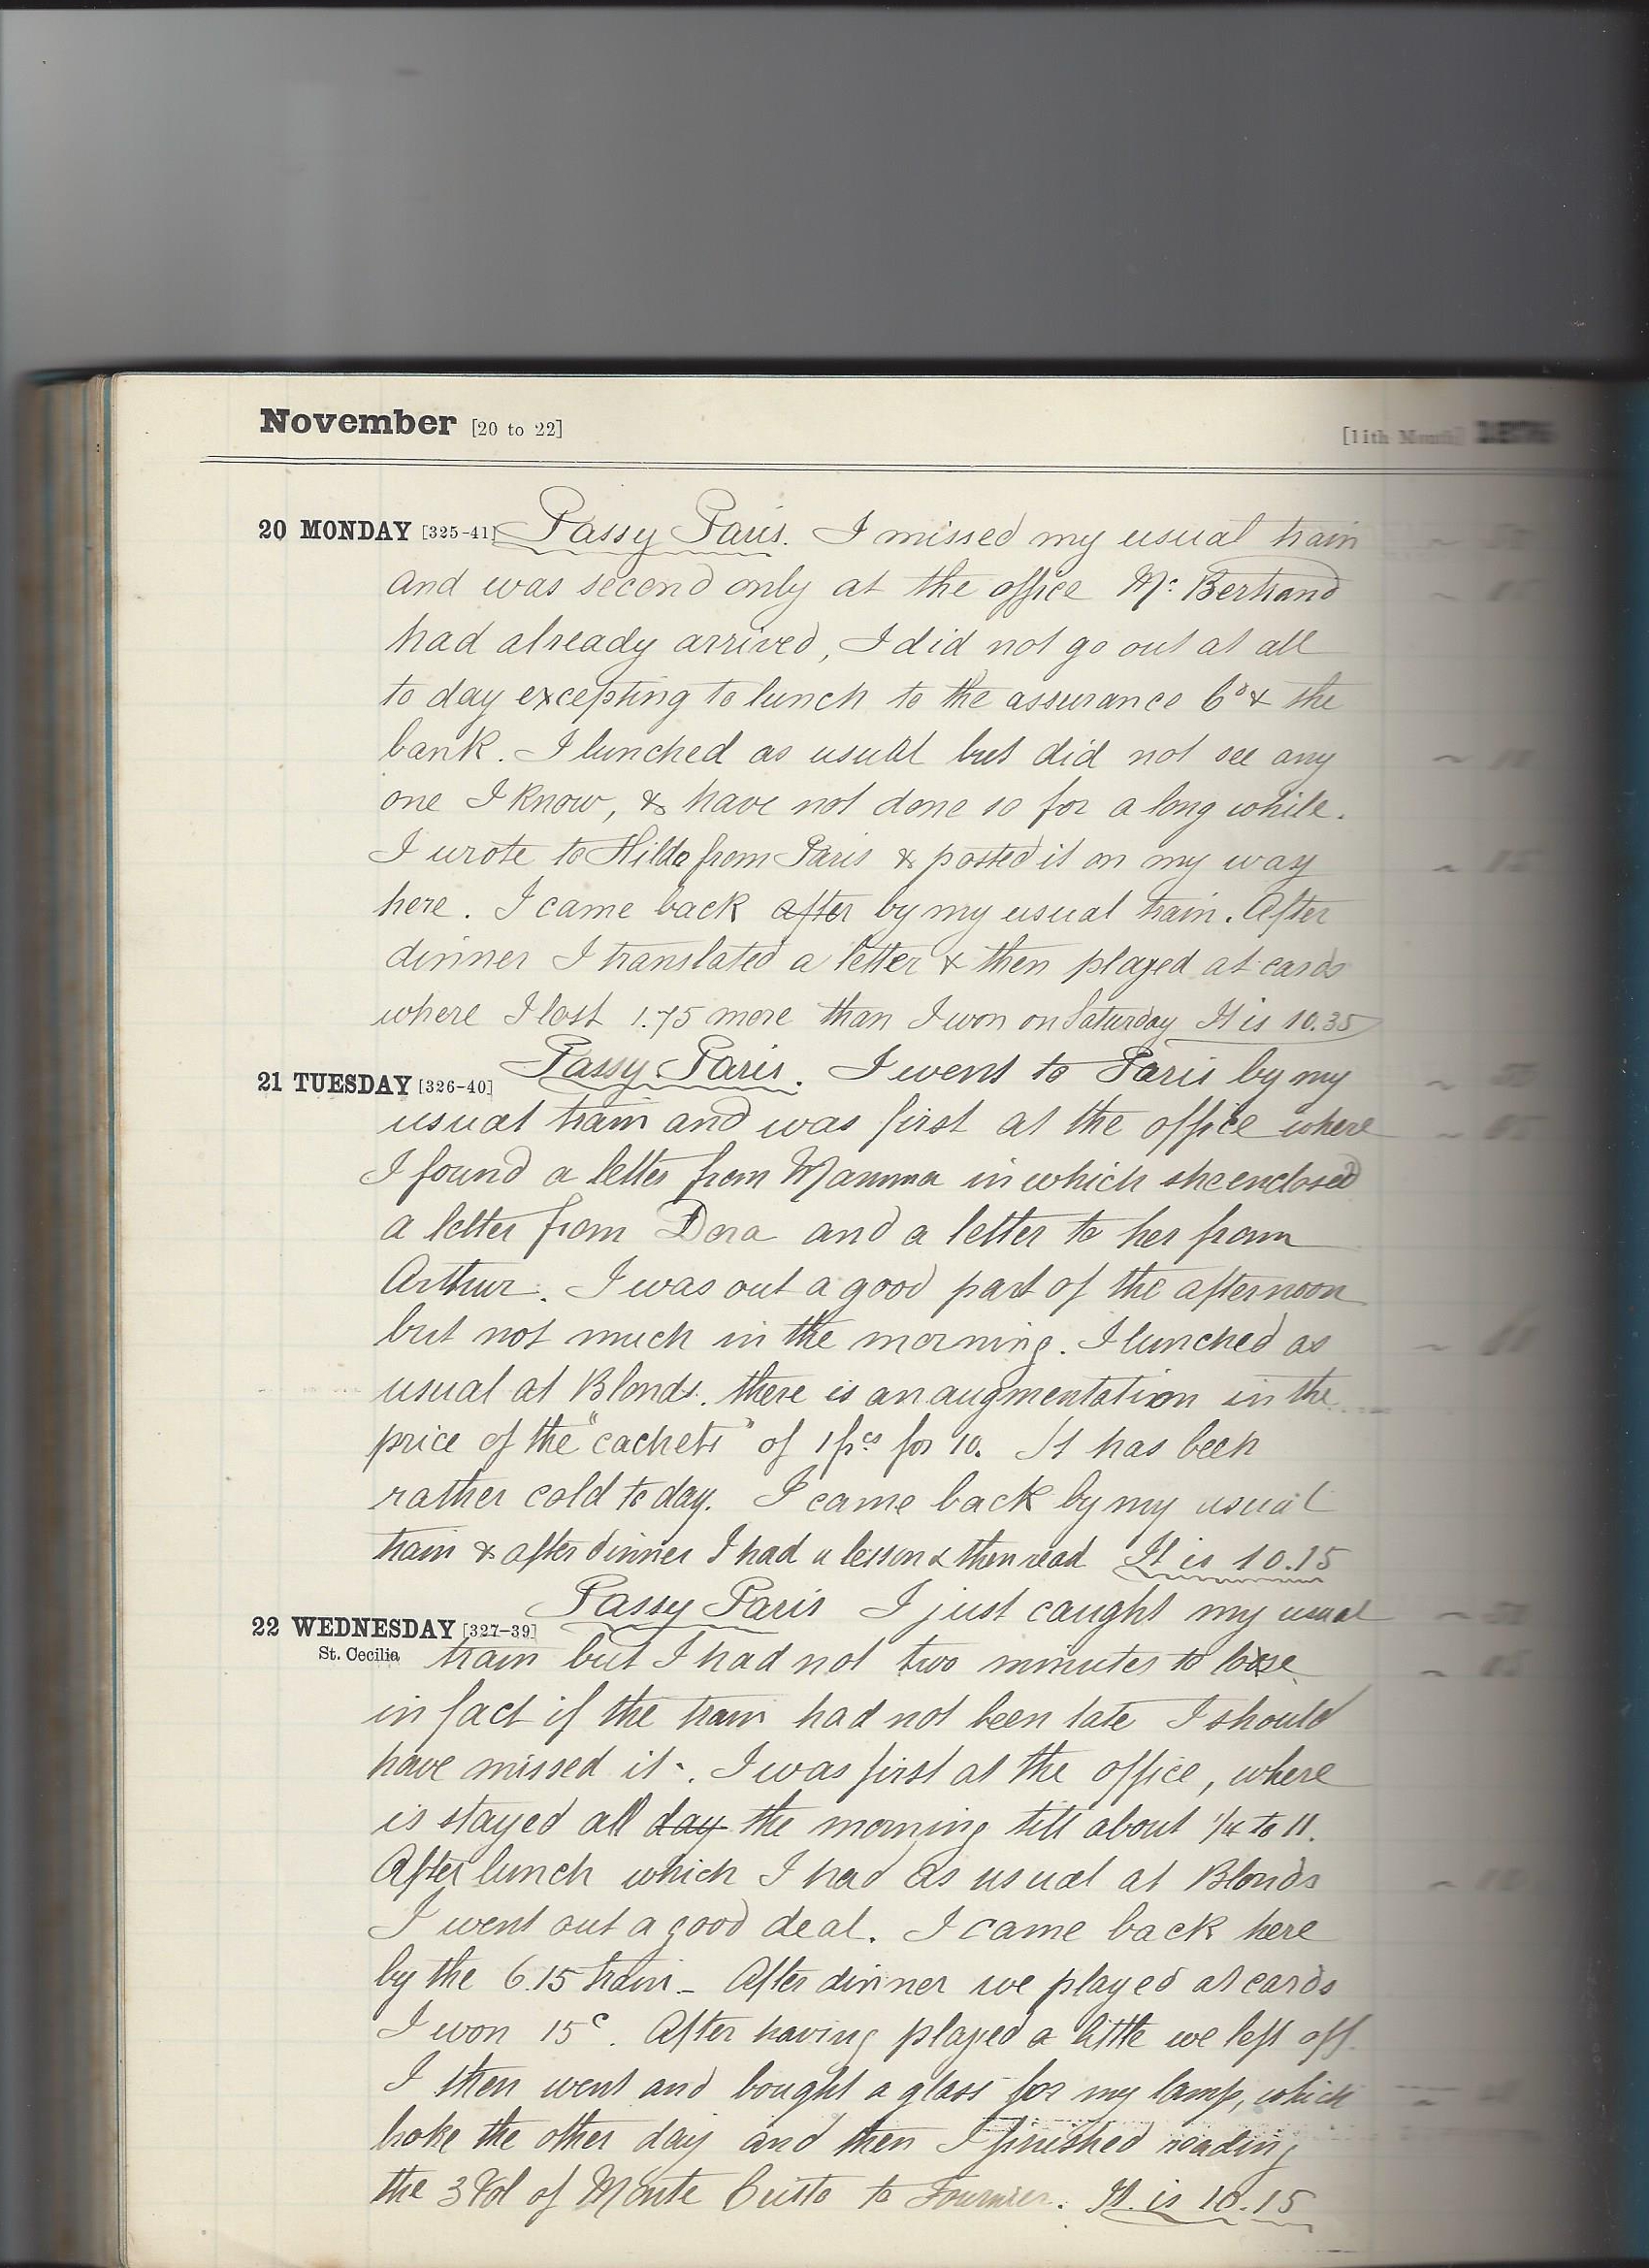 November [20 to 22] [11th Month] 1876
20 MONDAY [325-41] Passy Paris. I missed my usual train
and was second only at the office Mr. Bertrand
had already arrived, I did not go out at all
to day excepting to lunch to the assurance Co & the
bank. I lunched as usual but did not see any
one I know, & have not done so for a long while.
I wrote to Hilda from Paris & posted it on my way
here. I came back after by my usual train. After
dinner I translated a letter & then played at cards
where I lost 1.75 more than I won on Saturday It is 10.35
21 TUESDAY [326-40] Passy Paris. I went to Paris by my
usual train and was first at the office where
I found a letter from Mamma in which she enclosed
a letter from Dora and a letter to her from
Arthur. I was out a good part of the afternoon
but not much in the morning. I lunched as
usual at Blonds. there is an augmentation in the
price of the "cachets" of 1 frcs for 10. It has been
rather cold to day. I came back by my usual
train & after dinner I had a lesson & then read It is 10.15
22 WEDNESDAY [327-39] Passy Paris I just caught my usual
St. Cecilia train but I had not two minutes to loose
in fact if the train had not been late I should
have missed it. I was first at the office, where
is stayed all day the morning till about 1/4 to 11.
After lunch which I had as usual at Blonds
I went out a good deal. I came back here
by the 6.15 train - After dinner we played at cards
I won 15c. After having played a little we left off.
I then went and bought a glass for my lamp, which
broke the other day and then I finished reading
the 3 Vol of Monte Cristo to Fournier. It is 10.15